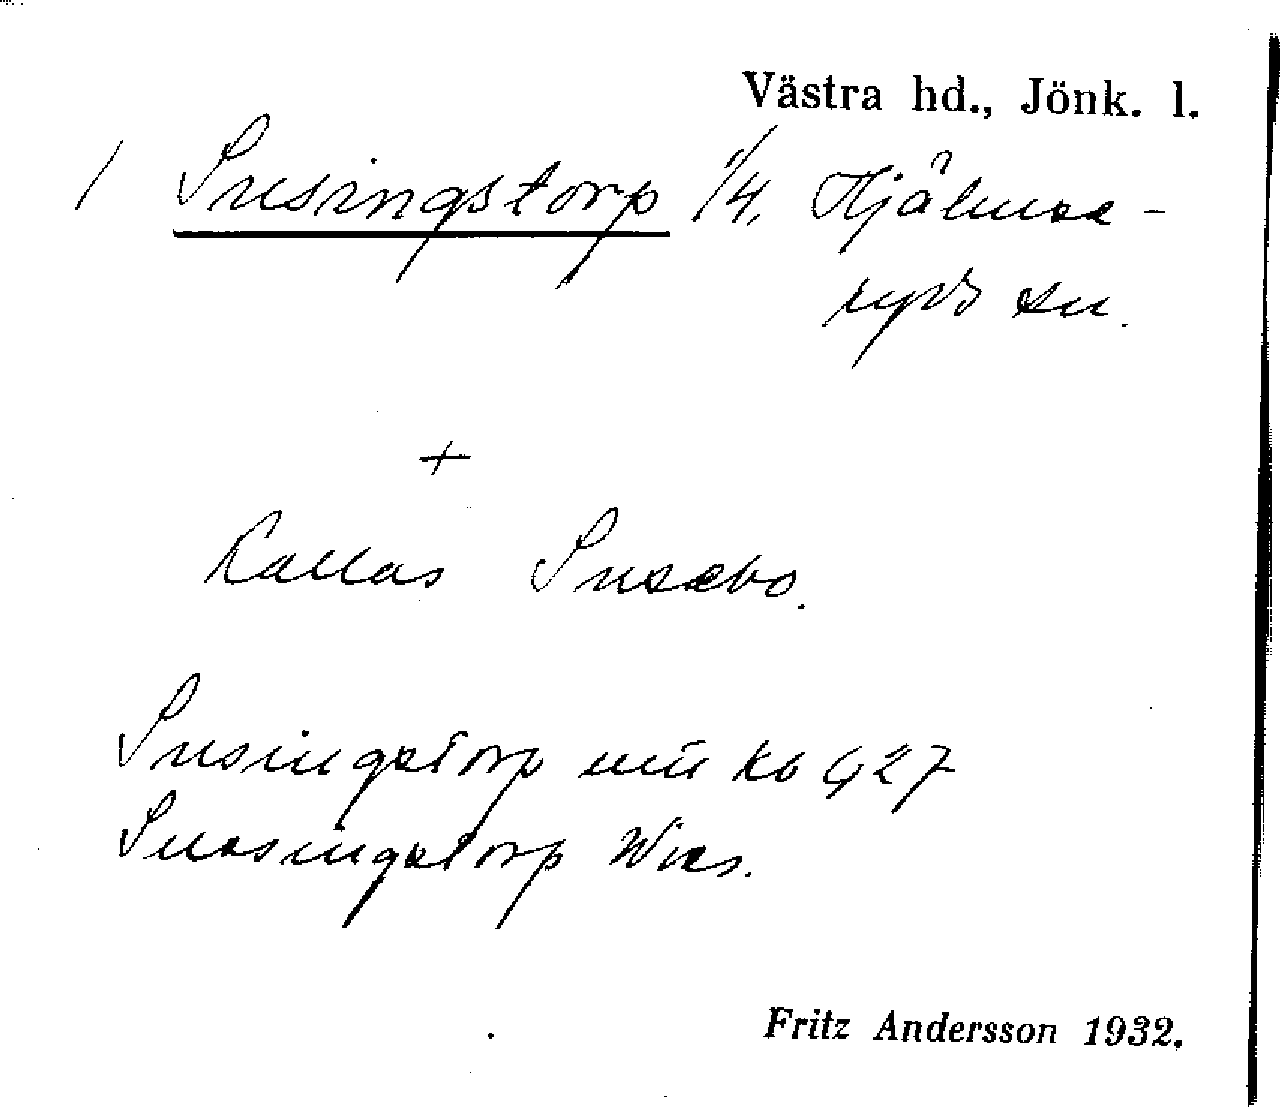 Västra hd., Jönk. l.
/ Susingstorp 1/4, Hjälmse-
ryds sn.
+
Kallas Susebo.
Susingstorp mtl kb G 27
Sussingstorp Wies.
Fritz Andersson 1932.